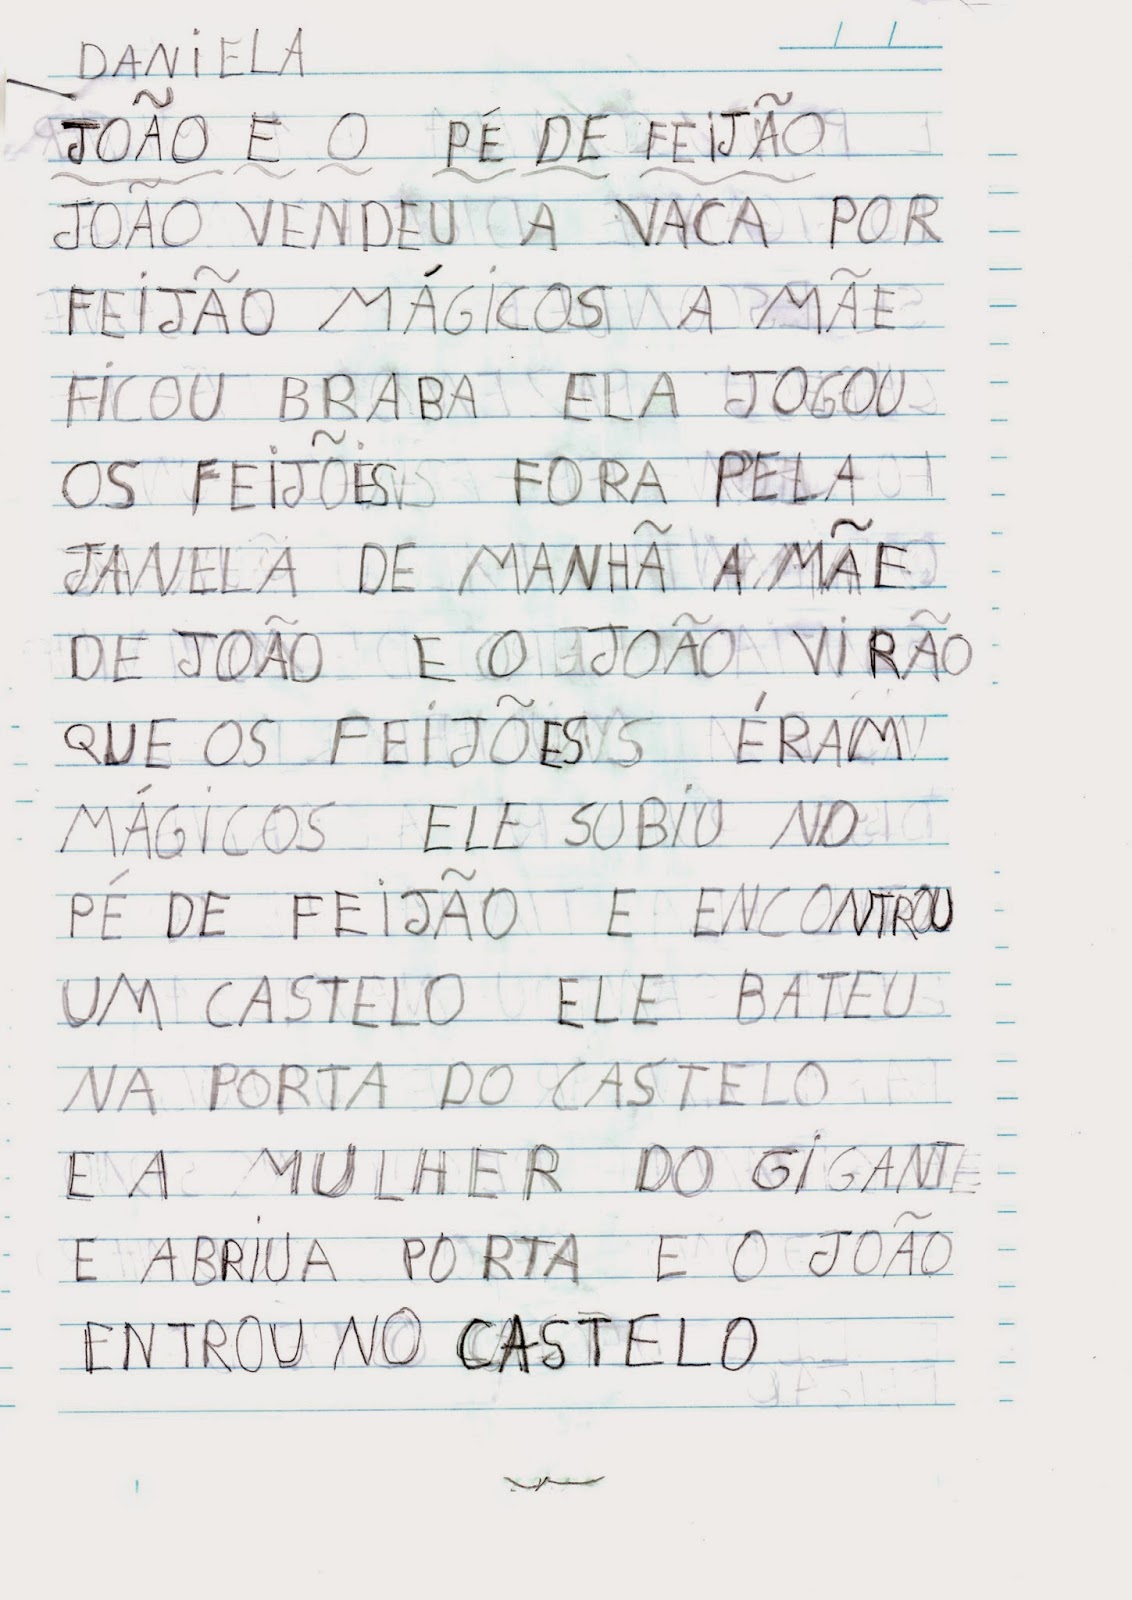 DANIELA
JOÃO E O PÉ DE FEIJÃO
JOÃO VENDEU A VACA POR
FEIJÃO MÁGICOS A MÃE
FICOU BRABA ELA JOGOU
OS FEIJÕES FORA PELA
JANELA DE MANHÃ A MÃE
DE JOÃO E O JOÃO VIRÃO
QUE OS FEIJÕES ÉRAM
MÁGICOS ELE SUBIU NO
PÉ DE FEIJÃO E ENCONTROU
UM CASTELO ELE BATEU
NA PORTA DO CASTELO
E A MULHER DO GIGANTE
E ABRIUA PORTA E O JOÃO
ENTROU NO CASTELO